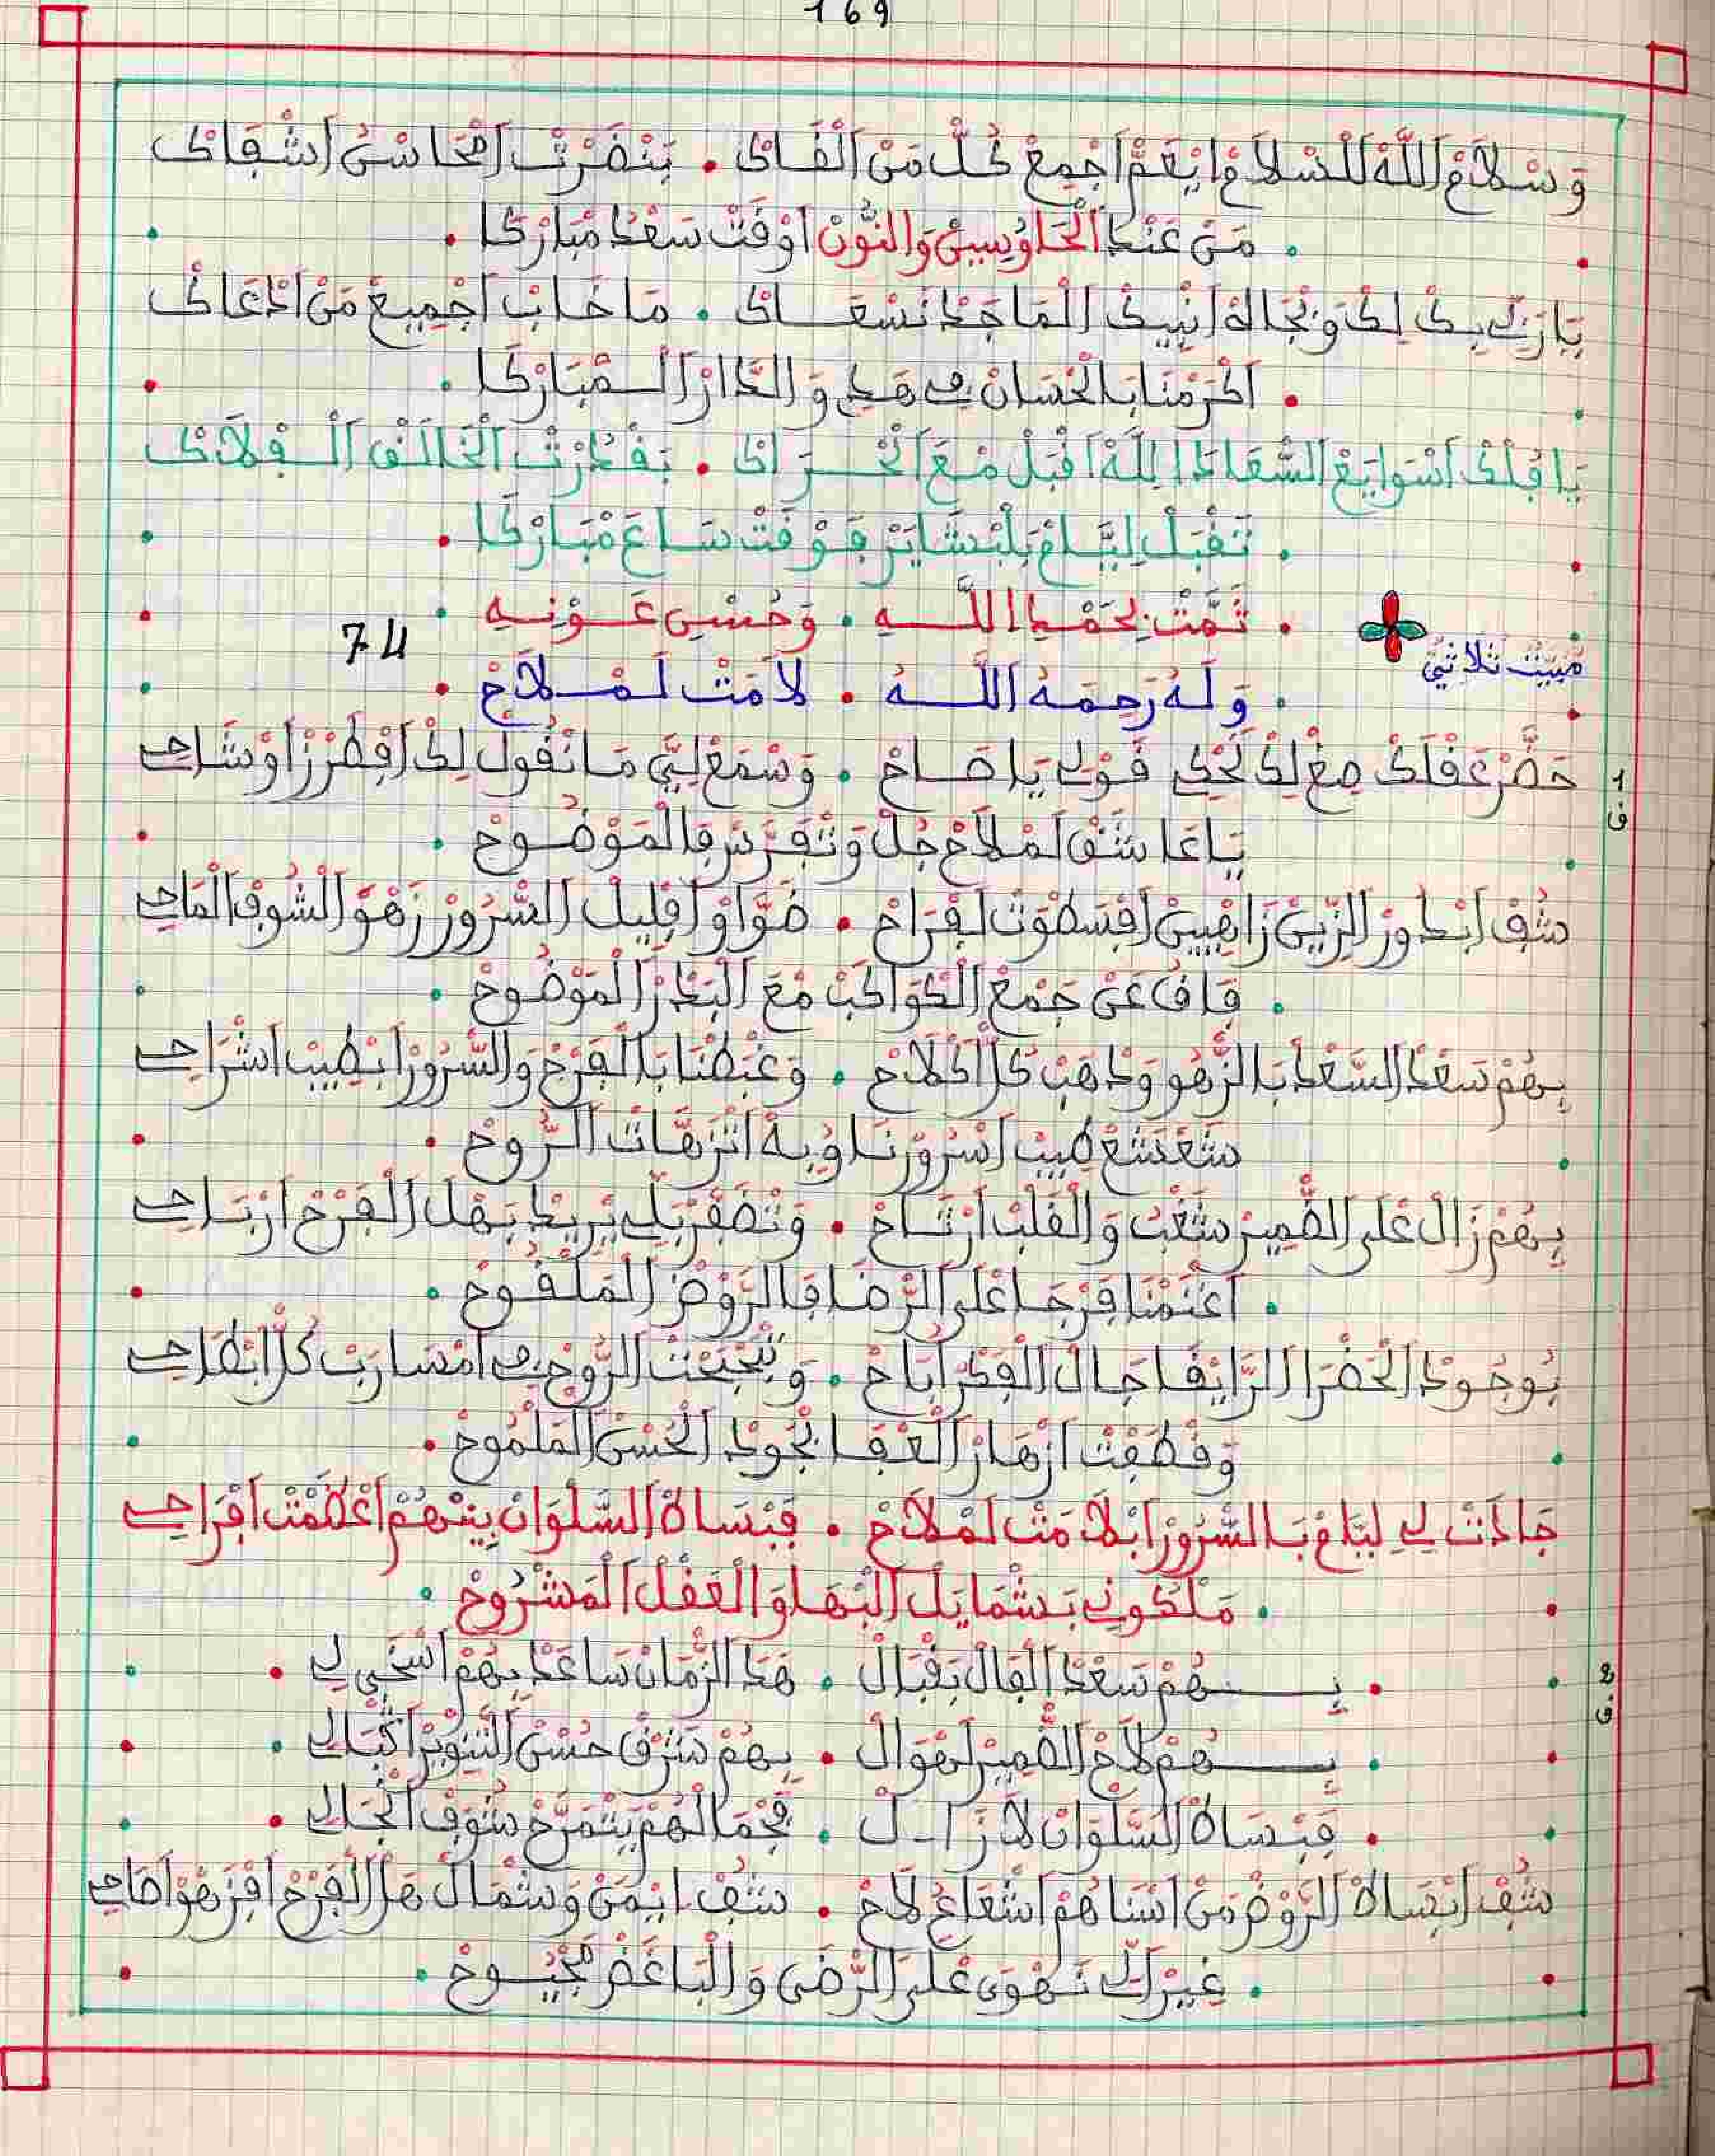 169
وَسْلَامْ اللَّهْ السْلَامْ اِيْعَمْ اجْمِعْ كُلّْ مَنْ الْقَاكْ . بَنْضَرْتْ امْحَاسْنُ اشْفَاكْ
. مَنْ عَنْدْ الْحَا وُسِينْ وَالنُّونْ اوْقَتْ سَعْدْ مْبَارْكَا .
يَا رَبِّي بِكْ لِكْ وَبْجَاهْ انْبِيكْ الْمَاجَدْ نَسْعَـاكْ . مَا خَابْ اجْمِيعْ مَنْ ادْعَاكْ
. اكْرَمْنَا بَالْحْسَانْ فِي هَدِي وَالدَّارْ الْـمْبَارْكَا .
يَا قُلْكْ اسْوَايَعْ السْعَادَا لِلَّهْ اقْبَلْ مْعَ الْحْـرَاكْ . بَقُدْرْتْ الْخَالَقْ الْـفْلَاكْ
. تَقْبَلْ لِيَّامْ بَلْبْشَايَرْ فَوْقَتْ سَاعَ مْبَارْكَا .
. تَمَّتْ بِحَمْدِ اللَّـهِ . وَحُسْنِ عَـوْنِهِ .
مْبَيَّتْ ثُلَاثِيّْ
74
. وَلَهُ رَحِمَهُ اللَّـهُ . لَامَتْ لَمْـلَاحْ .
1 ف
حَضَّرْ عَقْلَكْ صِغْ لِكْ نَحْكِي قَوْلِي يَا صَـاحْ . وَسْمَعْ لِيَّ مَا نْقُولْ لِكْ افْطَرْزْ اوْشَاحِي
يَا عَاشَقْ لَمْلَاحْ جُلْ وَتْفَرَّسْ فَالْمَوْضُـوحْ .
شُفْ ابْدُورْ الزِّينْ زَاهْيِينْ افْسَطْوَتْ لَفْرَاحْ . ضَوَّاوْ اقْلِيلْ السْرُورْ زَهْوْ الشُوفْ الْمَاحِي
. فَاقُ عَنْ جَمْعْ الْكْوَاكَبْ مْعَ الْبَدْرْ الْمَوْضُوحْ .
بِهُمْ سَعْدْ السَّعْدْ بَالزّْهُو وَدْهَبْ كُلّْ اكْلَاحْ . وَعْبَطْنَا بَالْفَرْحْ وَالسّْرُورْ ابْطِيبْ اشْرَاحِي
شَعْشَعْ طِيبْ اسْرُورْنَا وُبِهْ اتْنَزْهَاتْ الرُّوحْ .
بِهُمْ زَالْ عْلَى الضّْمِيرْ شَغْبُ وَالْقَلْبْ ارْتَـاحْ . وَنْضَفْرْ بَلِّي يْرِيدْ بَهْلْ الْفَرْحْ ارْبَـاحِي
. اغْتَمْنَا فَرْجَا عْلَى الرّْضَا فَالرَّوْضْ الْمَلْقُـوحْ .
بُوجُودْ الْحَضْرَا الرَّايْقَا جَالْ الْفِكْرْ ابَّاحْ . وَتْبَحْبَحْتْ الرُّوحْ فِي امْسَارَبْ كُلّْ ابْطَاحِي
وَقْطَفْتْ ازْهَارْ الْعْفَـا بْجُودْ الْحُسْنْ الْمَلْمُوحْ .
جَادَتْ لِي لِيَّامْ بَالسّْرُورْ ابْلَامَتْ لَمْلَاحْ . فَبْسَاطْ السَّلْوَانْ بِينْهُمْ اعْظَمْتْ افْرَاحِي
. مَلْكُونِي بَـشْمَايَلْ الْبْهَا وَالْعَقْلْ الْمَشْرُوحْ .
2 ف
. بِـــهُمْ سَعْدْ الْفَالْ بَقْبَالْ . هَدَ الزّْمَانْ سَاعَدْ بِهُمْ اسْخَى لِي .
. بِـــهُمْ لَاحْ الضّْمِيرْ لَهْوَالْ . بِهُمْ شَرْقْ حُسْنْ التَّنْوِيرْ اقْبَالِي .
. فَبْسَاطْ السَّلْوَانْ لَازَالْ . فَجْمَالْهُمْ يَتْمَرَّحْ شُوفْ انْجَالِي .
شُفْ ابْسَاطْ الرَّوْضْ مَنْ اسْنَاهُمْ اشْعَاعُ لَاحْ . شُفْ ايْمَنْ وَشْمَالْ هَلْ الْفَرْحْ افْزَهْوْ اصَاحِي
. غِيرْ الِّي نَـهْوَى عْلَى الرّْضَى وَالْبَاغَضْ مَجْيُـوحْ .